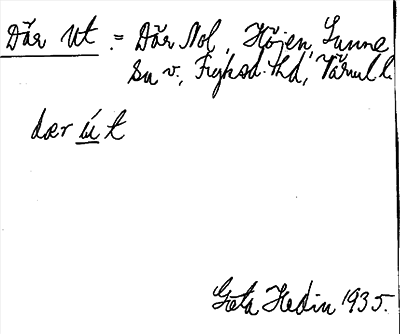 Där Ut = Där Nol, Höjen, Sunne
Sn v., Fryksd. hd, Värml l.
dær út
Greta Hedin 1935.